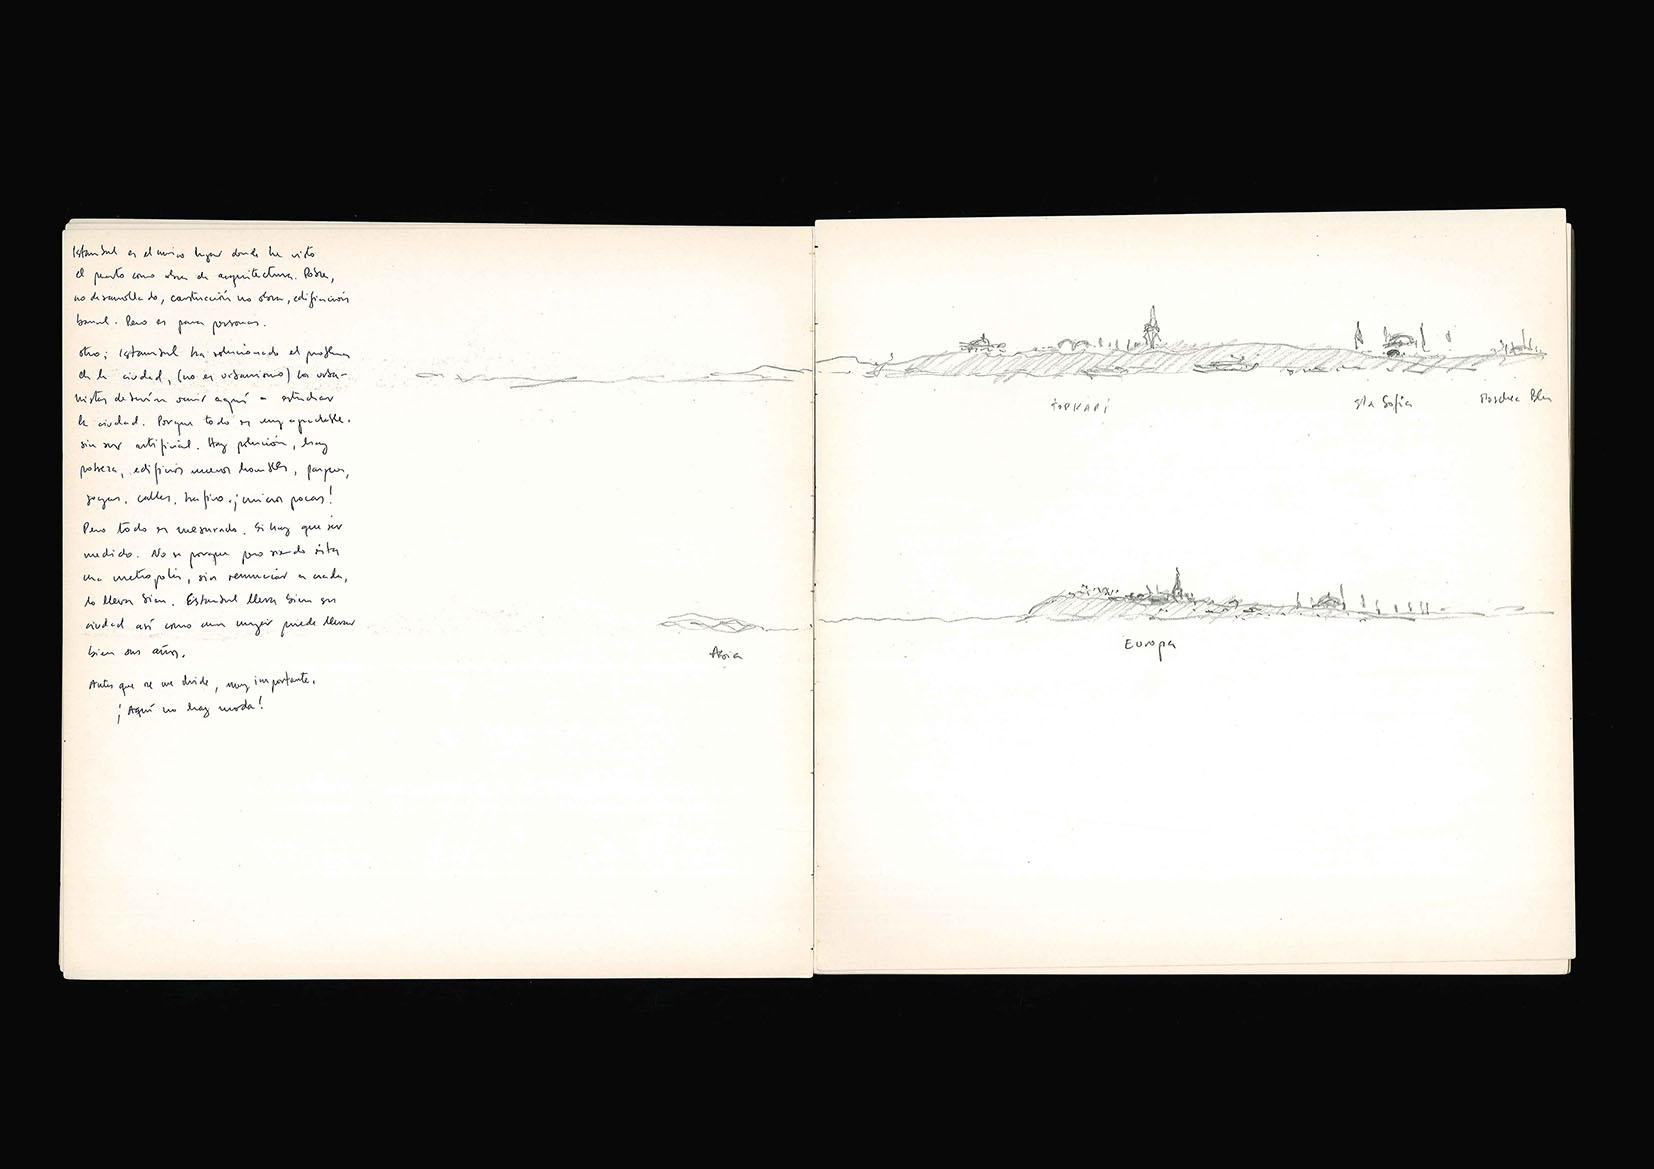 Istanbul es el único lugar donde he visto
el puerto como obra de arquitectura. Pobre,
no desarrollado, construcción no obra, edificación
banal. Pero es para personas.
otro; Istambul ha solucionado el problema
de la ciudad, (no es urbanismo) los urba-
nistas deberían venir aquí a estudiar
la ciudad. Porque todo es muy agradable.
sin ser artificial. Hay polución, hay
pobreza, edificios nuevos horribles, parques,
calles, trafico. ¡ pocas!
Pero todo es mesurado. Si hay que ser
medido. No se porque pero siendo esta
una metropolis, sin renunciar a nada,
lo lleva bien. Estambul lleva bien su
ciudad así como una mujer puede llevar
bien sus años.
Antes que se me olvide, muy importante.
¡Aquí no hay moda!
TOPKAPI
Sta Sofia
Moschea Blu
Asia
Europa